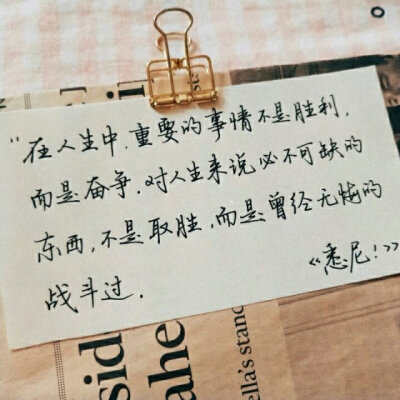 “在人生中,重要的事情不是胜利,
而是奋争,对人生来说必不可缺的
东西,不是取胜,而是曾经无悔的
战斗过.
《悉尼!》
sid
ahe
ella's stanc